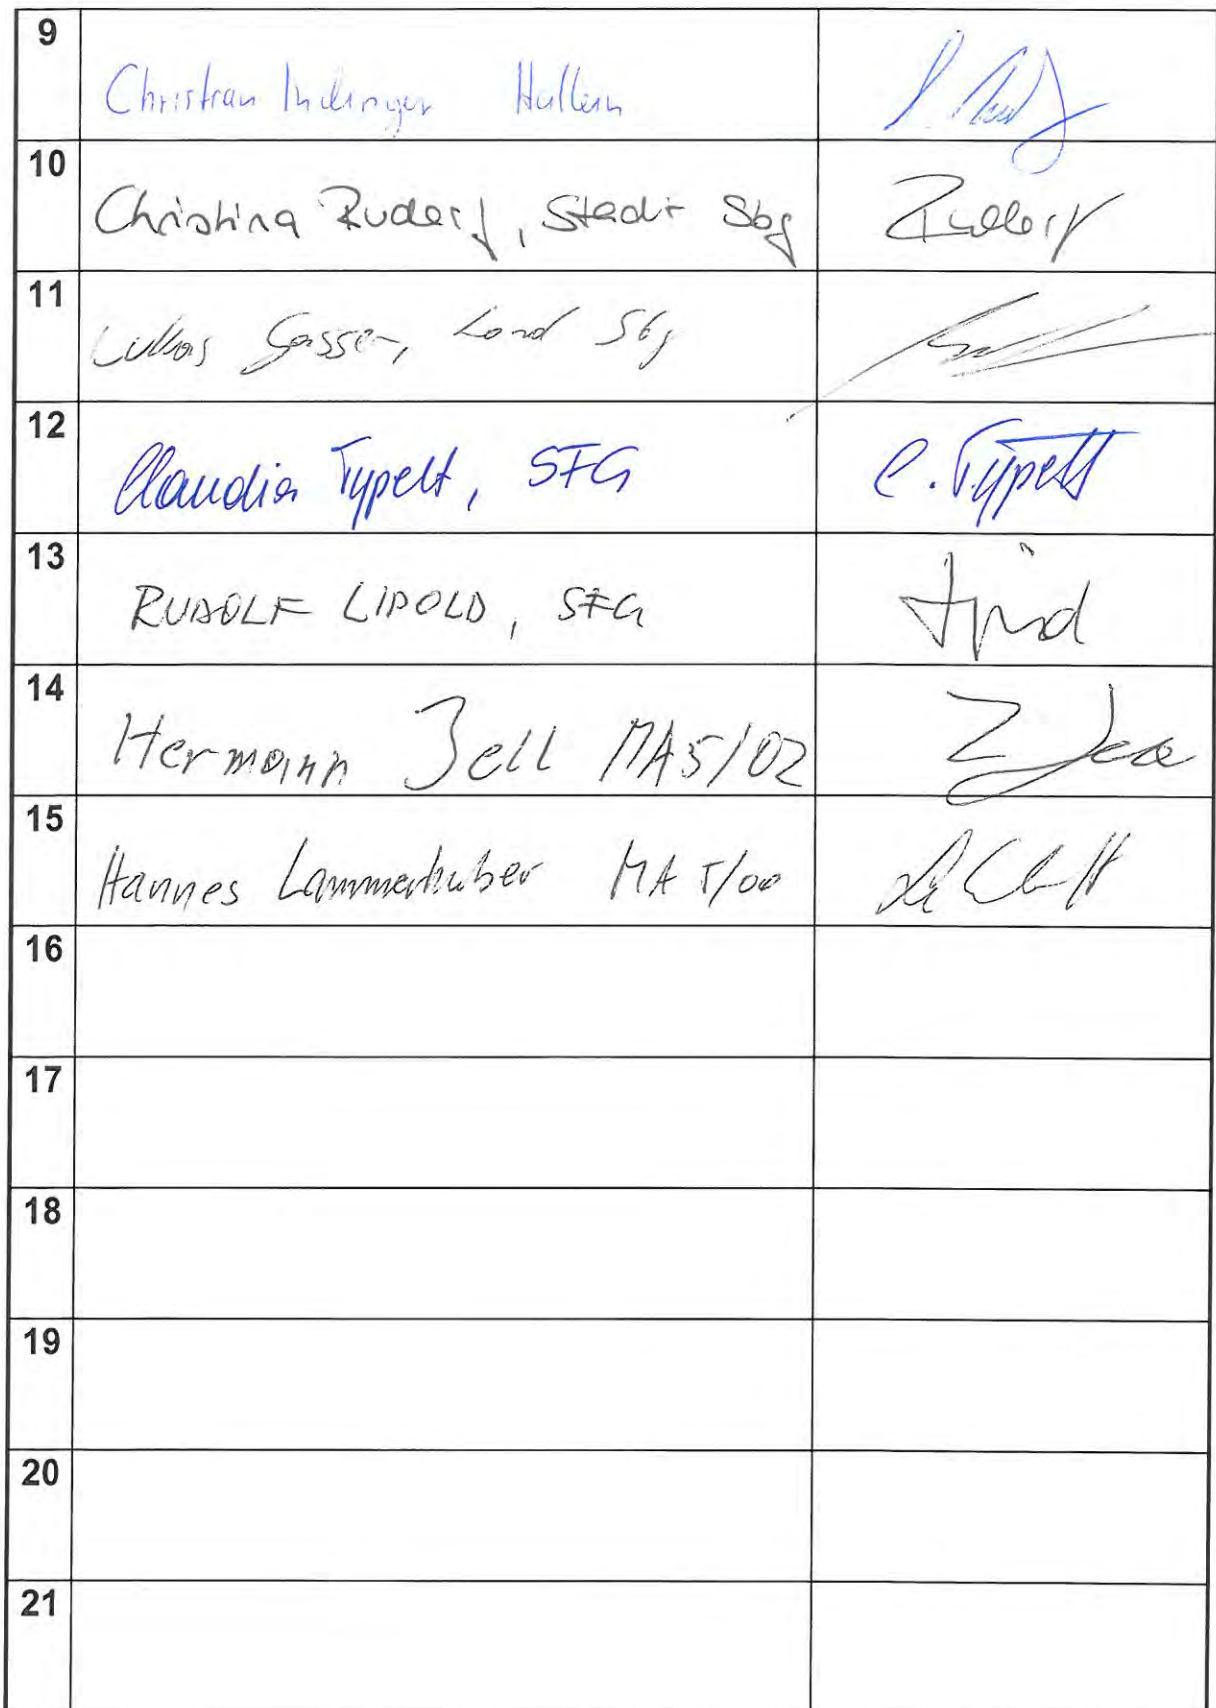 9
Christian Hallein
10
Christina Ruderf, Stadt Sbg
11
Lukas Gasser, Land Sbg
12
Claudia Typelt, SFG C. Typelt
13
RUDOLF LIPOLD, SFG
14
Hermann Zell MA5/02
15
Hannes Lammerhuber MA 5/00
16
17
18
19
20
21